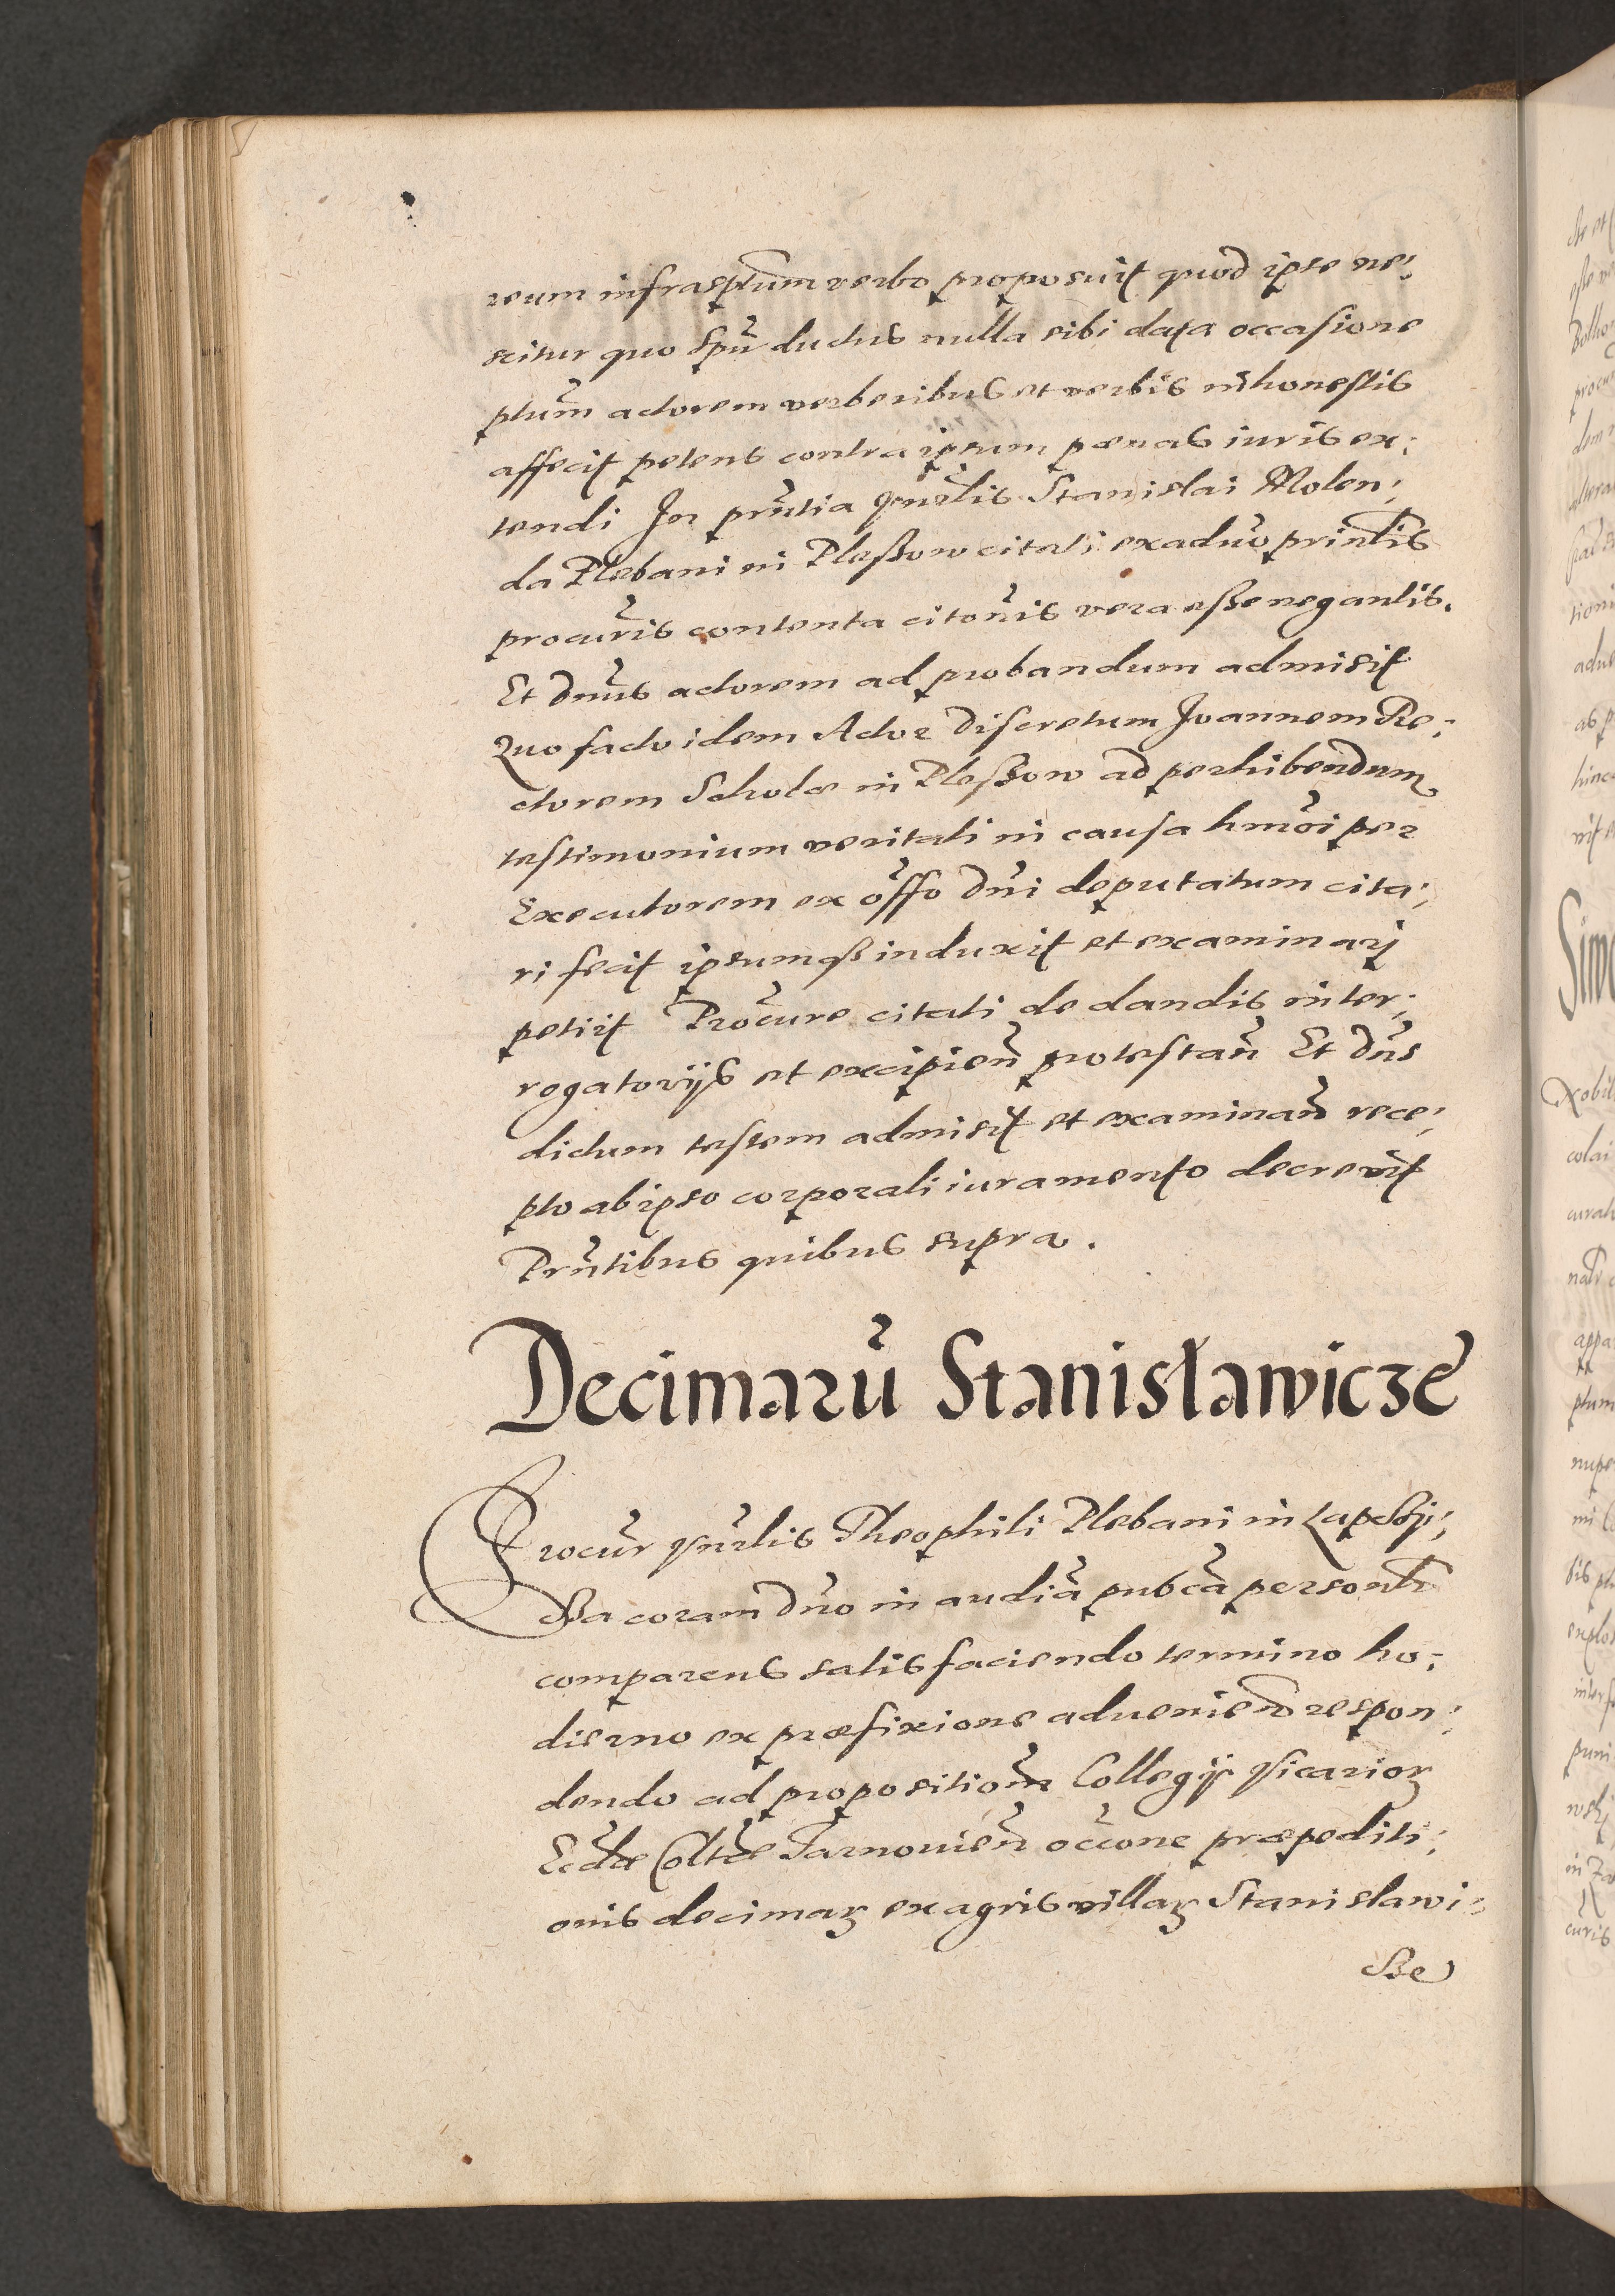 reum infrascptum verbo proposuit quod ipse ne:
scitur quo Spũ ductus nulla sibi data occasione
ptum̃ actorem verberibus et verbis inhonestis
affecit petens contra ipsum pœnas iuris ex:
tendi In pñtia Vñrlis Stanislai Molen:
da Plebani in Pleszow citati ex aduo principalis
procuris contenta citõnis vera esse negantis.
Et Dnũs actorem ad probandum admisit
Quo facto idem Actor Discretum Joannem Re:
ctorem Scholæ in Pleszow ad perhibendum
testimonium veritati in causa hmõi per
Executorem ex offo Dñi deputatum cita:
ri fecit ipsumqʒ induxit et examinarj
petiit Procure citati de dandis inter:
rogatorijs et excipieñ protestañ Et Dñs
dictum testem admisit et examinañ rece:
pto ab ipso corporali iuramento decrevit
Pñtibus quibus supra.
Decimarũ Stanisławicze
Procur̃ Vñrlis Theophili Plebani in Łapczy:
cza coram Dño in audiã pubcã personlr
comparens satisfaciendo termino ho:
dierno ex præfixione adueniẽ respon:
dendo ad propositionẽ Collegij Vicarioꝝ
Eccłæ Colłtæ Tarnovieñ occõne præpediti:
onis decimaꝝ ex agris villaꝝ Stanislawi:
cze